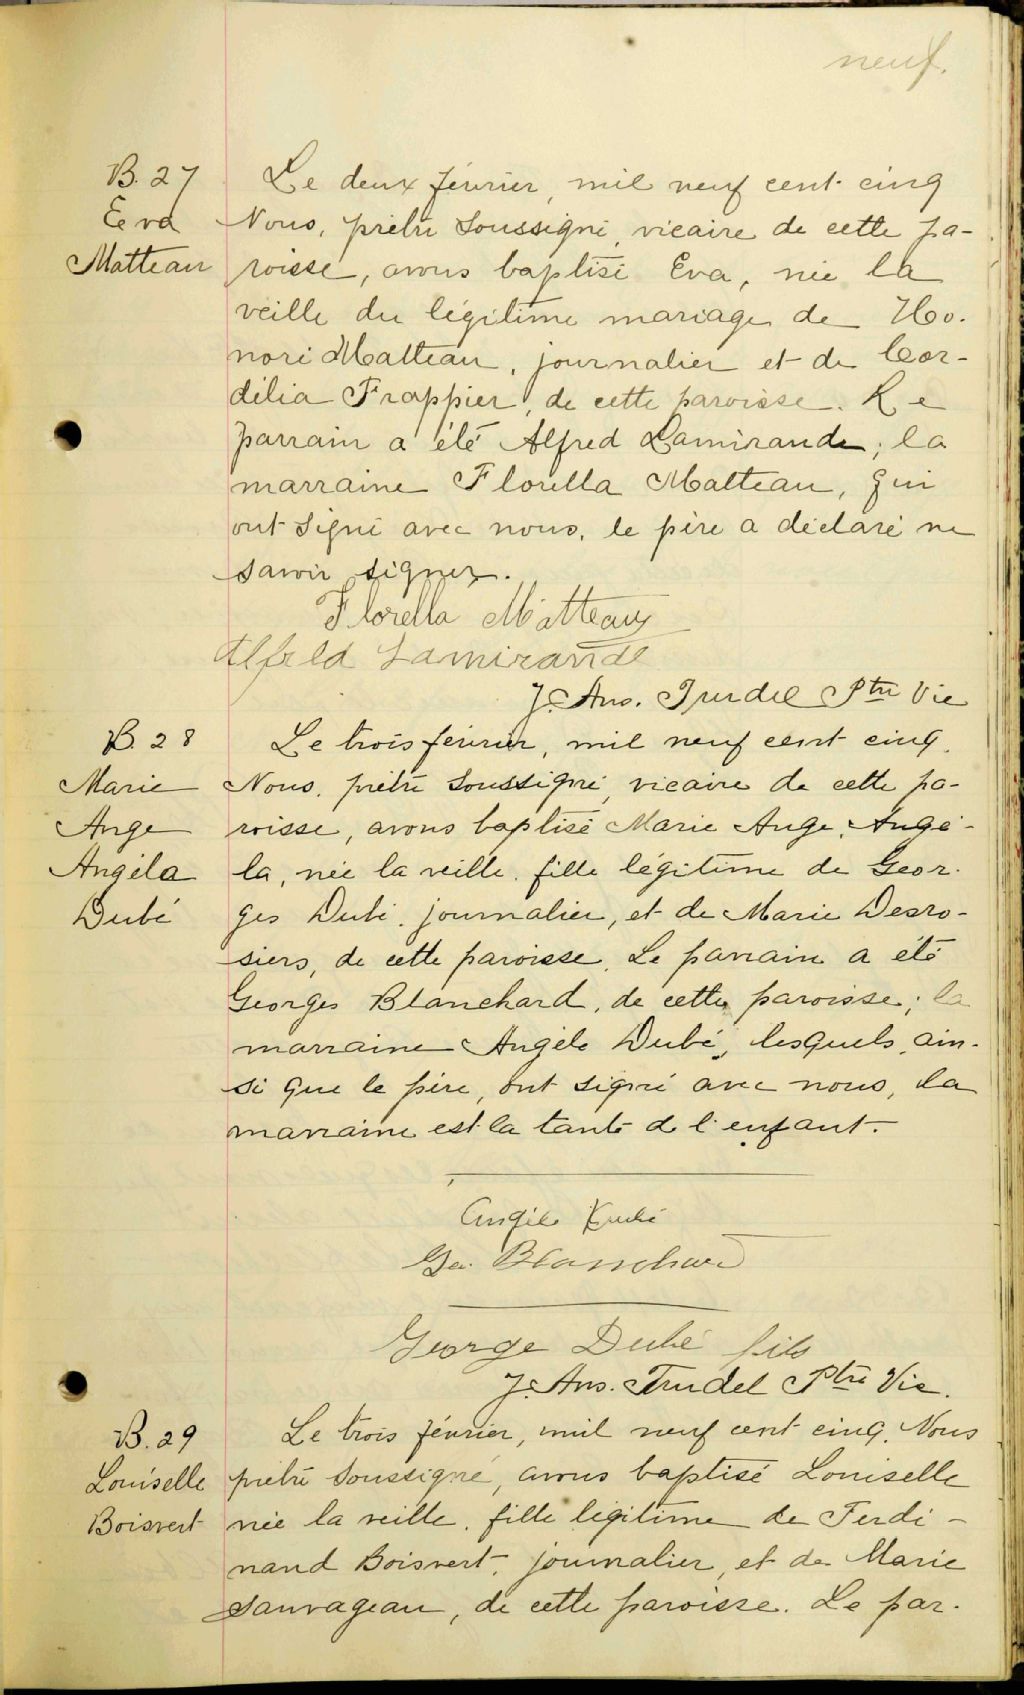 neuf.
B. 27
Eva
Matteau
Le deux février, mil neuf cent cinq
Nous, prêtre soussigné, vicaire de cette pa-
roisse, avons baptisé Eva, née la
veille du légitime mariage de Ho-
noré Matteau, journalier et de Cor-
délia Frappier, de cette paroisse. Le
parrain a été Alfred Lamirande; la
marraine Florella Matteau, qui
ont signé avec nous, le père a déclaré ne
savoir signer.
Florella Matteau
Alfred Lamirande
J. Ans. Trudel Ptre Vic
B. 28
Marie
Ange
Angéla
Dubé
Le trois février, mil neuf cent cinq.
Nous, prêtre soussigné, vicaire de cette pa-
roisse, avons baptisé Marie Ange, Angé-
la, née la veille, fille légitime de Geor-
ges Dubé, journalier, et de Marie Desro-
siers, de cette paroisse. Le parrain a été
Georges Blanchard, de cette paroisse; la
marraine Angèle Dubé, lesquels, ain-
si que le père, ont signé avec nous, la
marraine est la tante de l'enfant.
Angèle Dubé
Geo. Blanchard
George Dubé fils
J. Ans. Trudel Ptre Vic.
B. 29
Louiselle
Boisvert
Le trois février, mil neuf cent cinq, Nous
prêtre soussigné, avons baptisé Louiselle
née la veille, fille légitime de Ferdi-
nand Boisvert, journalier, et de Marie
Sauvageau, de cette paroisse. Le par-